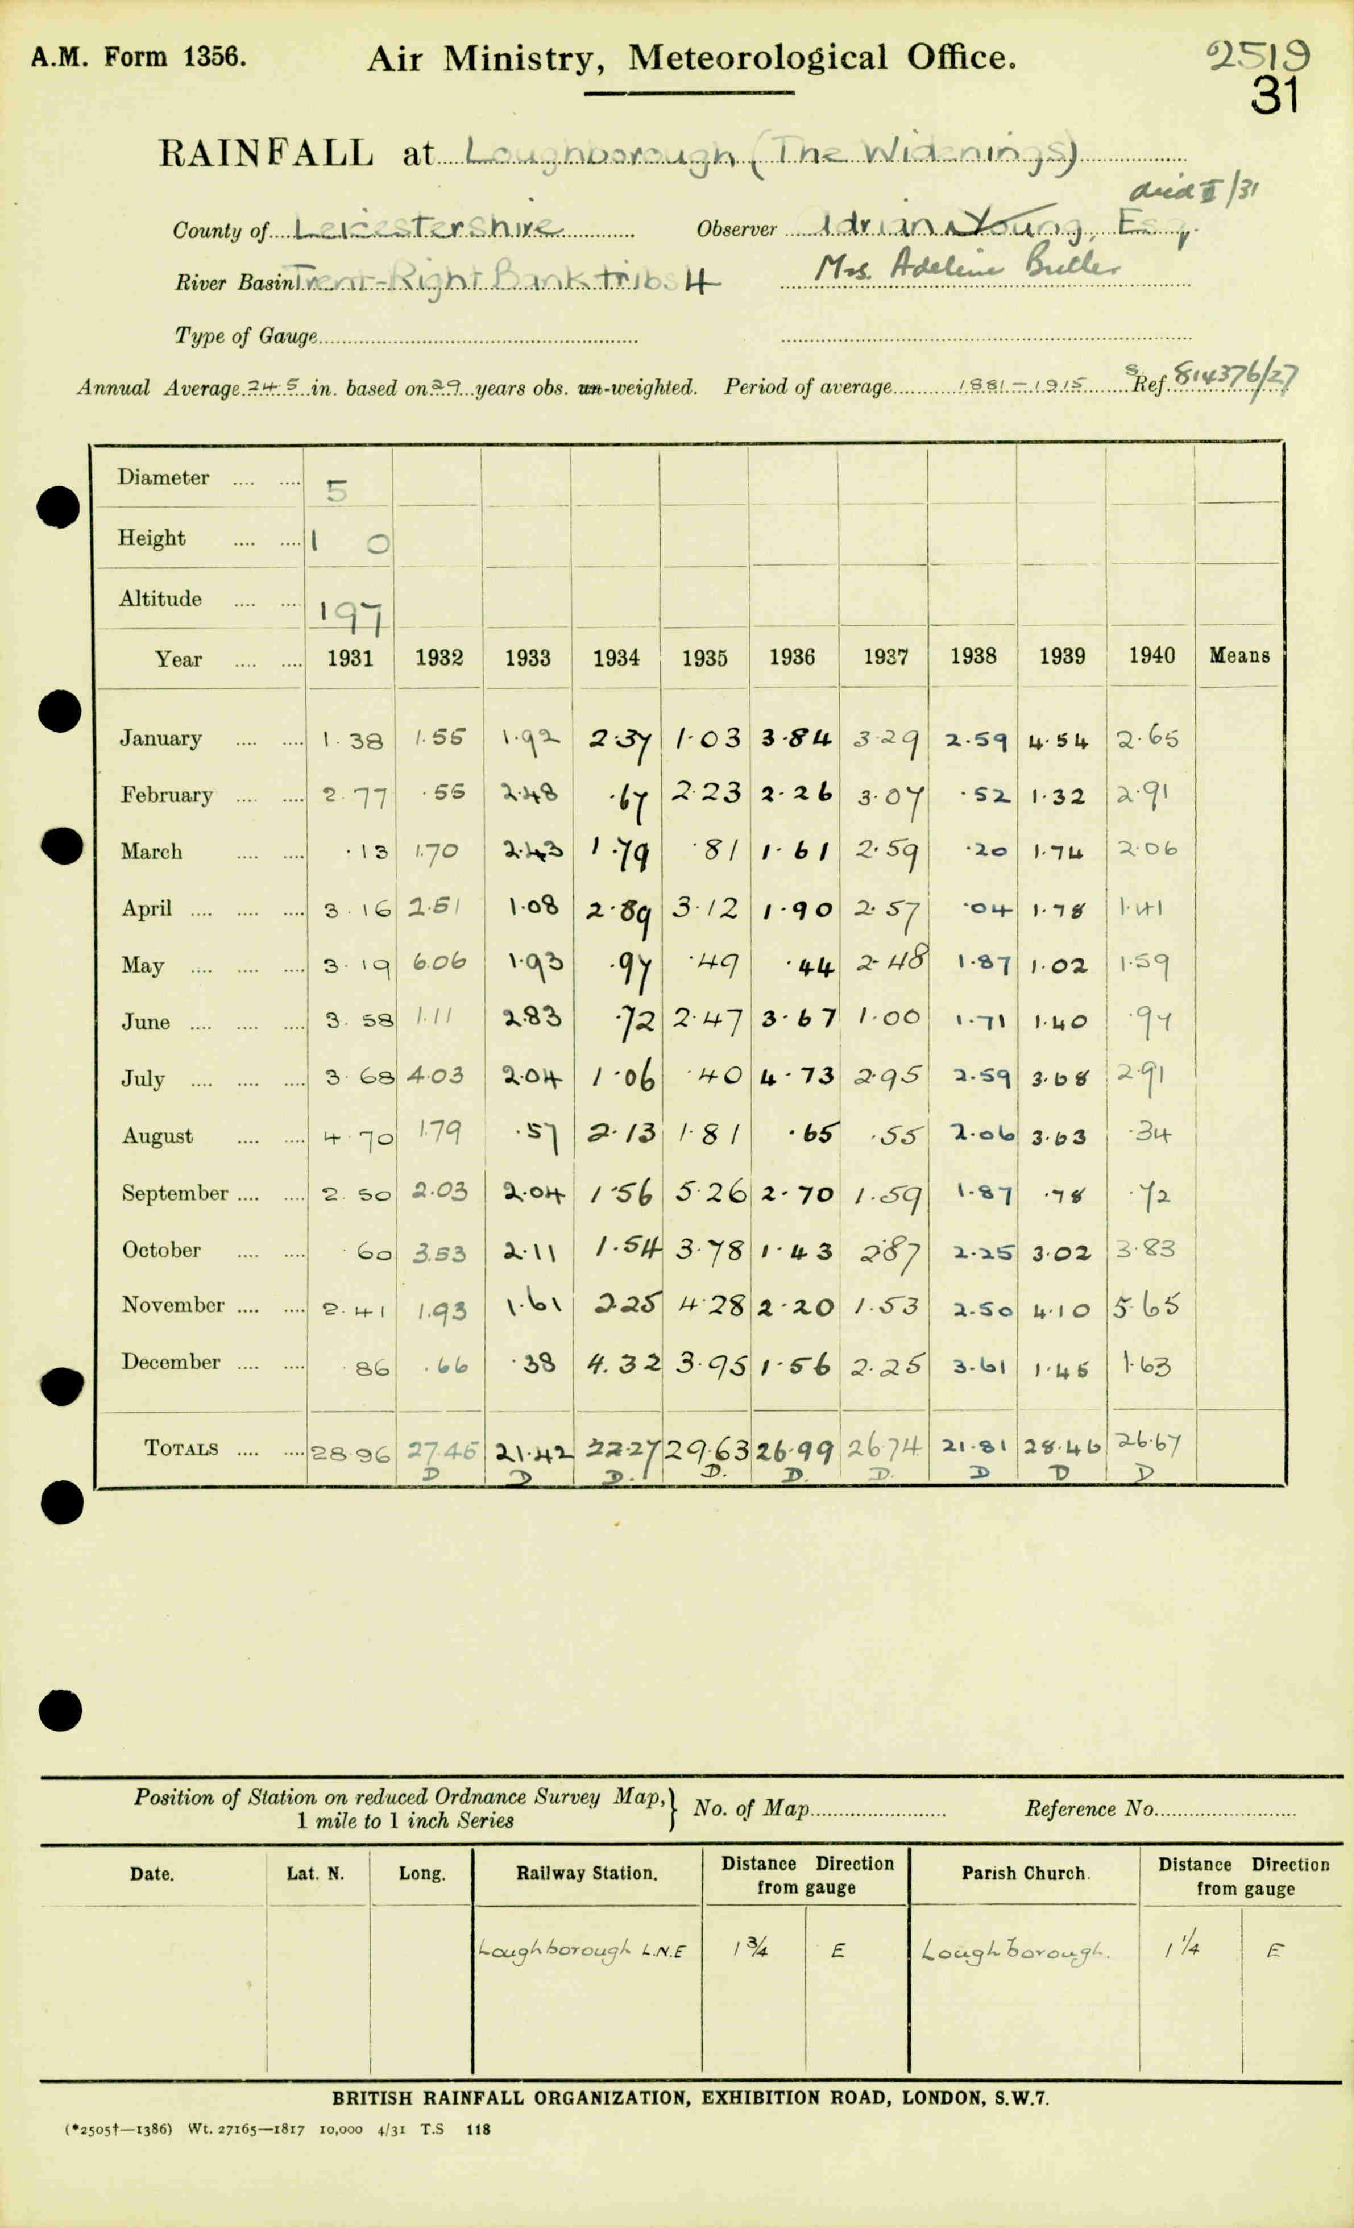 A.M. Form 1356.
Air Ministry, Meteorological Office.
2519
31
RAINFALL at Loughborough (The Widenings)
died II/31
County of Leicestershire Observer Adrian Young, Esq.
River Basin Trent-Right Bank tribs 4 Mrs. Adeline Butler
Type of Gauge
Annual Average 24.5 in. based on 29 years obs. un-weighted. Period of average 1881-1915 Ref. 814376/27
Diameter 5
Height 1 0
Altitude 197
Year 1931 1932 1933 1934 1935 1936 1937 1938 1939 1940 Means
January 1.38 1.55 1.92 2.37 1.03 3.84 3.29 2.59 4.54 2.65
February 2.77 .55 2.48 .67 2.23 2.26 3.07 .52 1.32 2.91
March .13 1.70 2.43 1.79 .81 1.61 2.59 .20 1.74 2.06
April 3.16 2.51 1.08 2.89 3.12 1.90 2.57 .04 1.78 1.41
May 3.19 6.06 1.93 .97 .49 .44 2.48 1.87 1.02 1.59
June 3.58 1.11 2.83 .72 2.47 3.67 1.00 1.71 1.40 .97
July 3.68 4.03 2.04 1.06 .40 4.73 2.95 2.59 3.68 2.91
August 4.70 1.79 .57 2.13 1.81 .65 .55 2.06 3.63 .34
September 2.50 2.03 2.04 1.56 5.26 2.70 1.59 1.87 .78 .72
October .60 3.53 2.11 1.54 3.78 1.43 2.87 2.25 3.02 3.83
November 2.41 1.93 1.61 2.25 4.28 2.20 1.53 2.50 4.10 5.65
December .86 .66 .38 4.32 3.95 1.56 2.25 3.61 1.45 1.63
TOTALS 28.96 27.45 21.42 22.27 29.63 26.99 26.74 21.81 28.46 26.67
D D D. D. D. D. D D D
Position of Station on reduced Ordnance Survey Map, } No. of Map Reference No.
1 mile to 1 inch Series
Date. Lat. N. Long. Railway Station. Distance Direction from gauge Parish Church. Distance Direction from gauge
Loughborough L.N.E 1¾ E Loughborough. 1¼ E
BRITISH RAINFALL ORGANIZATION, EXHIBITION ROAD, LONDON, S.W.7.
(*2505†—1386) Wt. 27165—1817 10,000 4/31 T.S 118